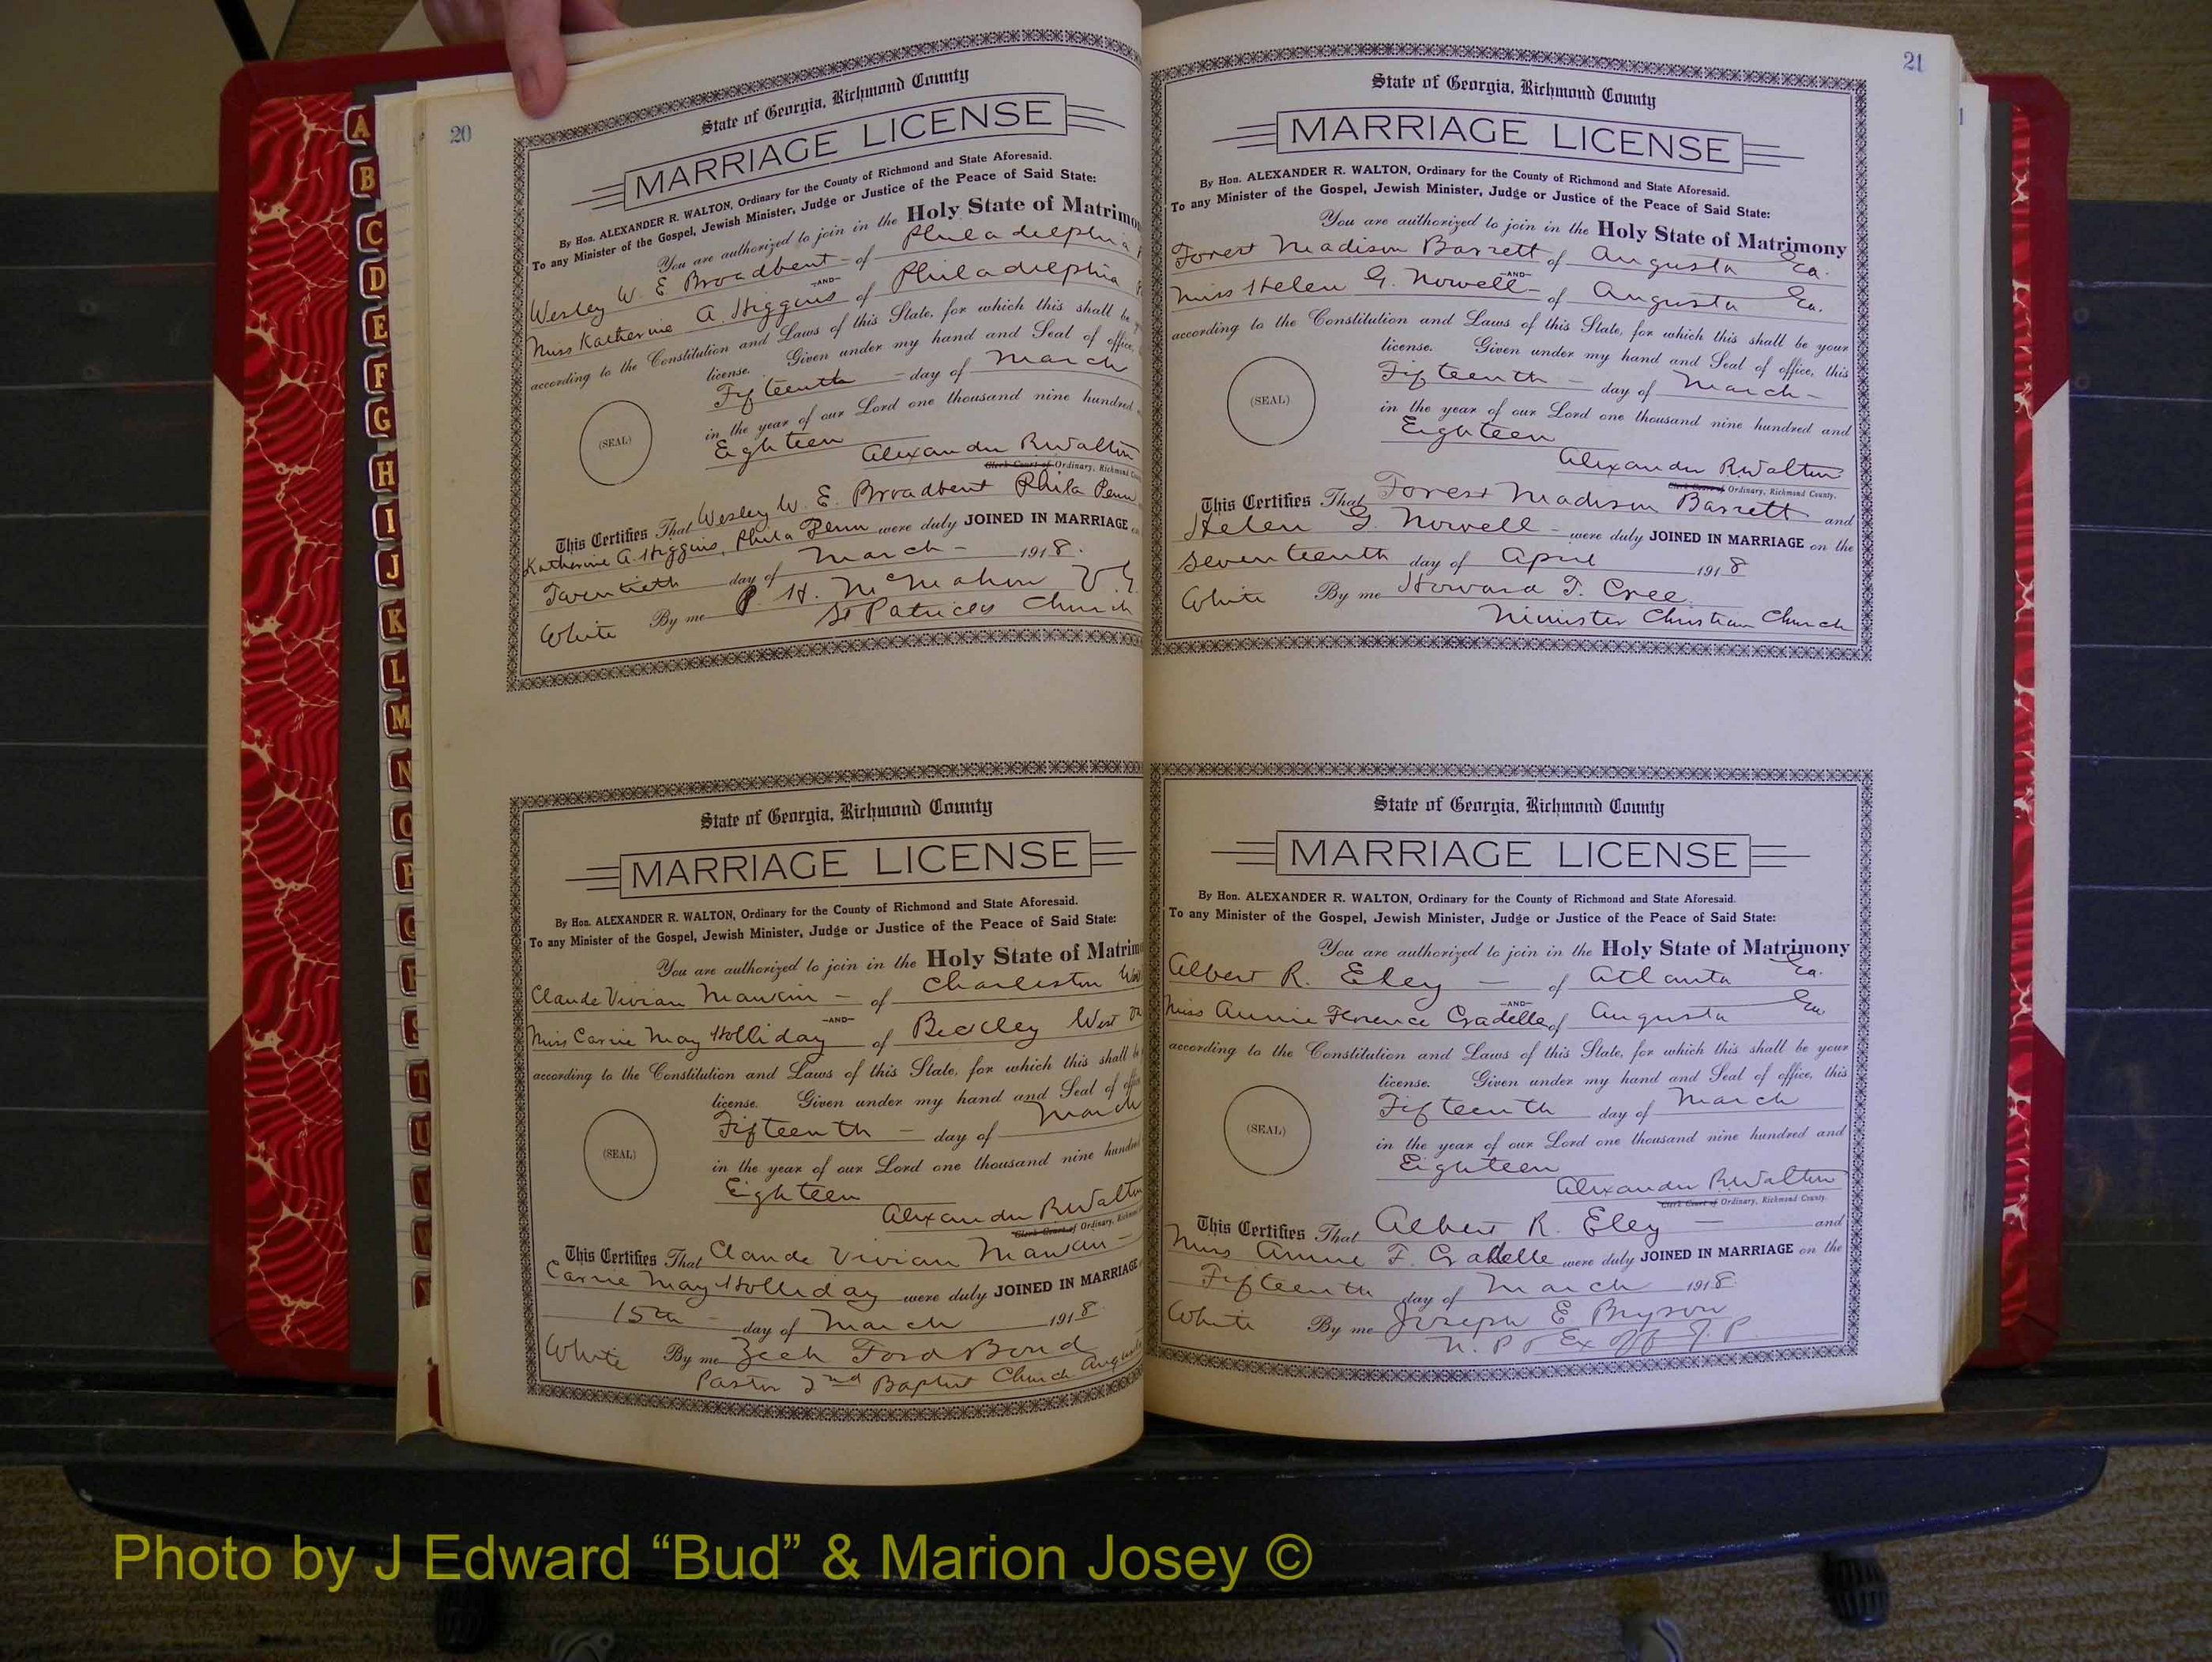 20
State of Georgia, Richmond County
MARRIAGE LICENSE
By Hon. ALEXANDER R. WALTON, Ordinary for the County of Richmond and State Aforesaid.
To any Minister of the Gospel, Jewish Minister, Judge or Justice of the Peace of Said State:
You are authorized to join in the Holy State of Matrimo
Wesley W. E Broadbent of Philadelphia
-AND-
Miss Katherine A. Higgins of Philadelphia
according to the Constitution and Laws of this State, for which this shall be
license. Given under my hand and Seal of office,
Fifteenth - day of March
(SEAL)
in the year of our Lord one thousand nine hundred
Eighteen
Alexander R Walton
Clerk Court of Ordinary, Richmond
This Certifies That Wesley W. E. Broadbent Phila Penn
Katherine A. Higgins, Phila Penn were duly JOINED IN MARRIAGE
Twentieth day of March - 1918.
White By me P. H. McMahon V. G.
St Patricks Church
State of Georgia, Richmond County
MARRIAGE LICENSE
By Hon. ALEXANDER R. WALTON, Ordinary for the County of Richmond and State Aforesaid.
To any Minister of the Gospel, Jewish Minister, Judge or Justice of the Peace of Said State:
You are authorized to join in the Holy State of Matrim
Claude Vivian - of Charleston
-AND-
Miss Carrie May Holliday of Beckley West
according to the Constitution and Laws of this State, for which this shall
license. Given under my hand and Seal of
Fifteenth - day of March
(SEAL)
in the year of our Lord one thousand nine
Eighteen
Alexander R Walton
Clerk Court of Ordinary,
This Certifies That Claude Vivian
Carrie May Holliday were duly JOINED IN MARRIAGE
15th - day of March 1918.
White By me Zach Ford Bond
Pastor 2nd Baptist Church
21
State of Georgia, Richmond County
MARRIAGE LICENSE
By Hon. ALEXANDER R. WALTON, Ordinary for the County of Richmond and State Aforesaid.
To any Minister of the Gospel, Jewish Minister, Judge or Justice of the Peace of Said State:
You are authorized to join in the Holy State of Matrimony
Forest Madison Barrett of Augusta Ga.
-AND-
Miss Helen G. Nowell - of Augusta Ga.
according to the Constitution and Laws of this State, for which this shall be your
license. Given under my hand and Seal of office, this
Fifteenth - day of March -
(SEAL)
in the year of our Lord one thousand nine hundred and
Eighteen
Alexander R Walton
Clerk Court of Ordinary, Richmond County.
This Certifies That Forest Madison Barrett and
Helen G. Nowell - were duly JOINED IN MARRIAGE on the
seventeenth day of April 1918
White By me Howard T. Cree
Minister Christian Church
State of Georgia, Richmond County
MARRIAGE LICENSE
By Hon. ALEXANDER R. WALTON, Ordinary for the County of Richmond and State Aforesaid.
To any Minister of the Gospel, Jewish Minister, Judge or Justice of the Peace of Said State:
You are authorized to join in the Holy State of Matrimony
Albert R. Eley - of Atlanta Ga.
-AND-
Miss Annie Florence of Augusta Ga
according to the Constitution and Laws of this State, for which this shall be your
license. Given under my hand and Seal of office, this
Fifteenth day of March
(SEAL)
in the year of our Lord one thousand nine hundred and
Eighteen
Alexander R. Walton
Clerk Court of Ordinary, Richmond County.
This Certifies That Albert R. Eley - and
Miss Annie F. were duly JOINED IN MARRIAGE on the
Fifteenth day of March 1918.
White By me Joseph E Bryson
N. P & Ex Off J. P.
A
B
C
D
E
F
G
H
I
J
K
L
M
N
O
P
Q
R
S
T
U
V
W
Photo by J Edward “Bud” & Marion Josey ©